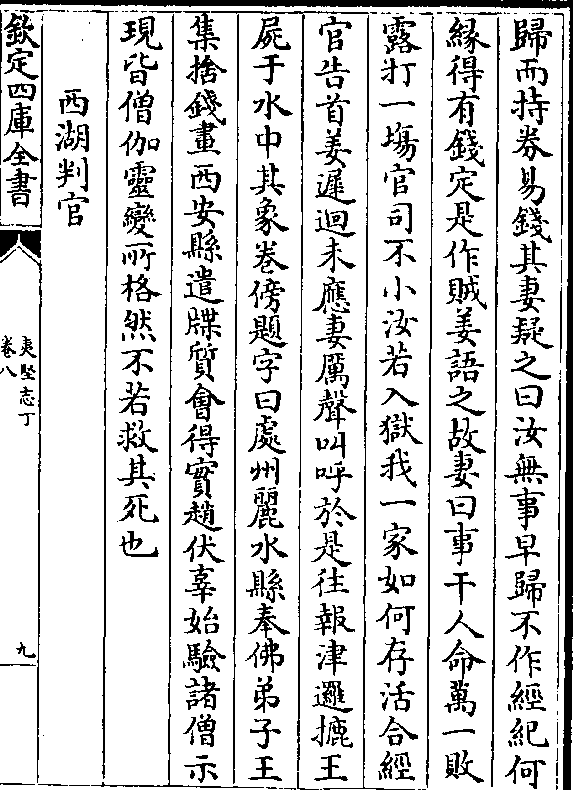 歸而持券易錢其妻疑之曰汝無事早歸不作經紀何
縁得有錢定是作賊姜語之故妻曰事干人命萬一敗
露打一塲官司不小汝若入獄我一家如何存活合經
官告首姜遲迴未應妻厲聲叫呼於是往報津邏摝王
屍于水中其象卷傍題字曰處州麗水縣奉佛弟子王
集捨錢畫西安縣遣牒質會得實趙伏辜始驗諸僧示
現皆僧伽靈變所格然不若救其死也
西湖判官
欽定四庫全書
夷堅志丁
卷八
九